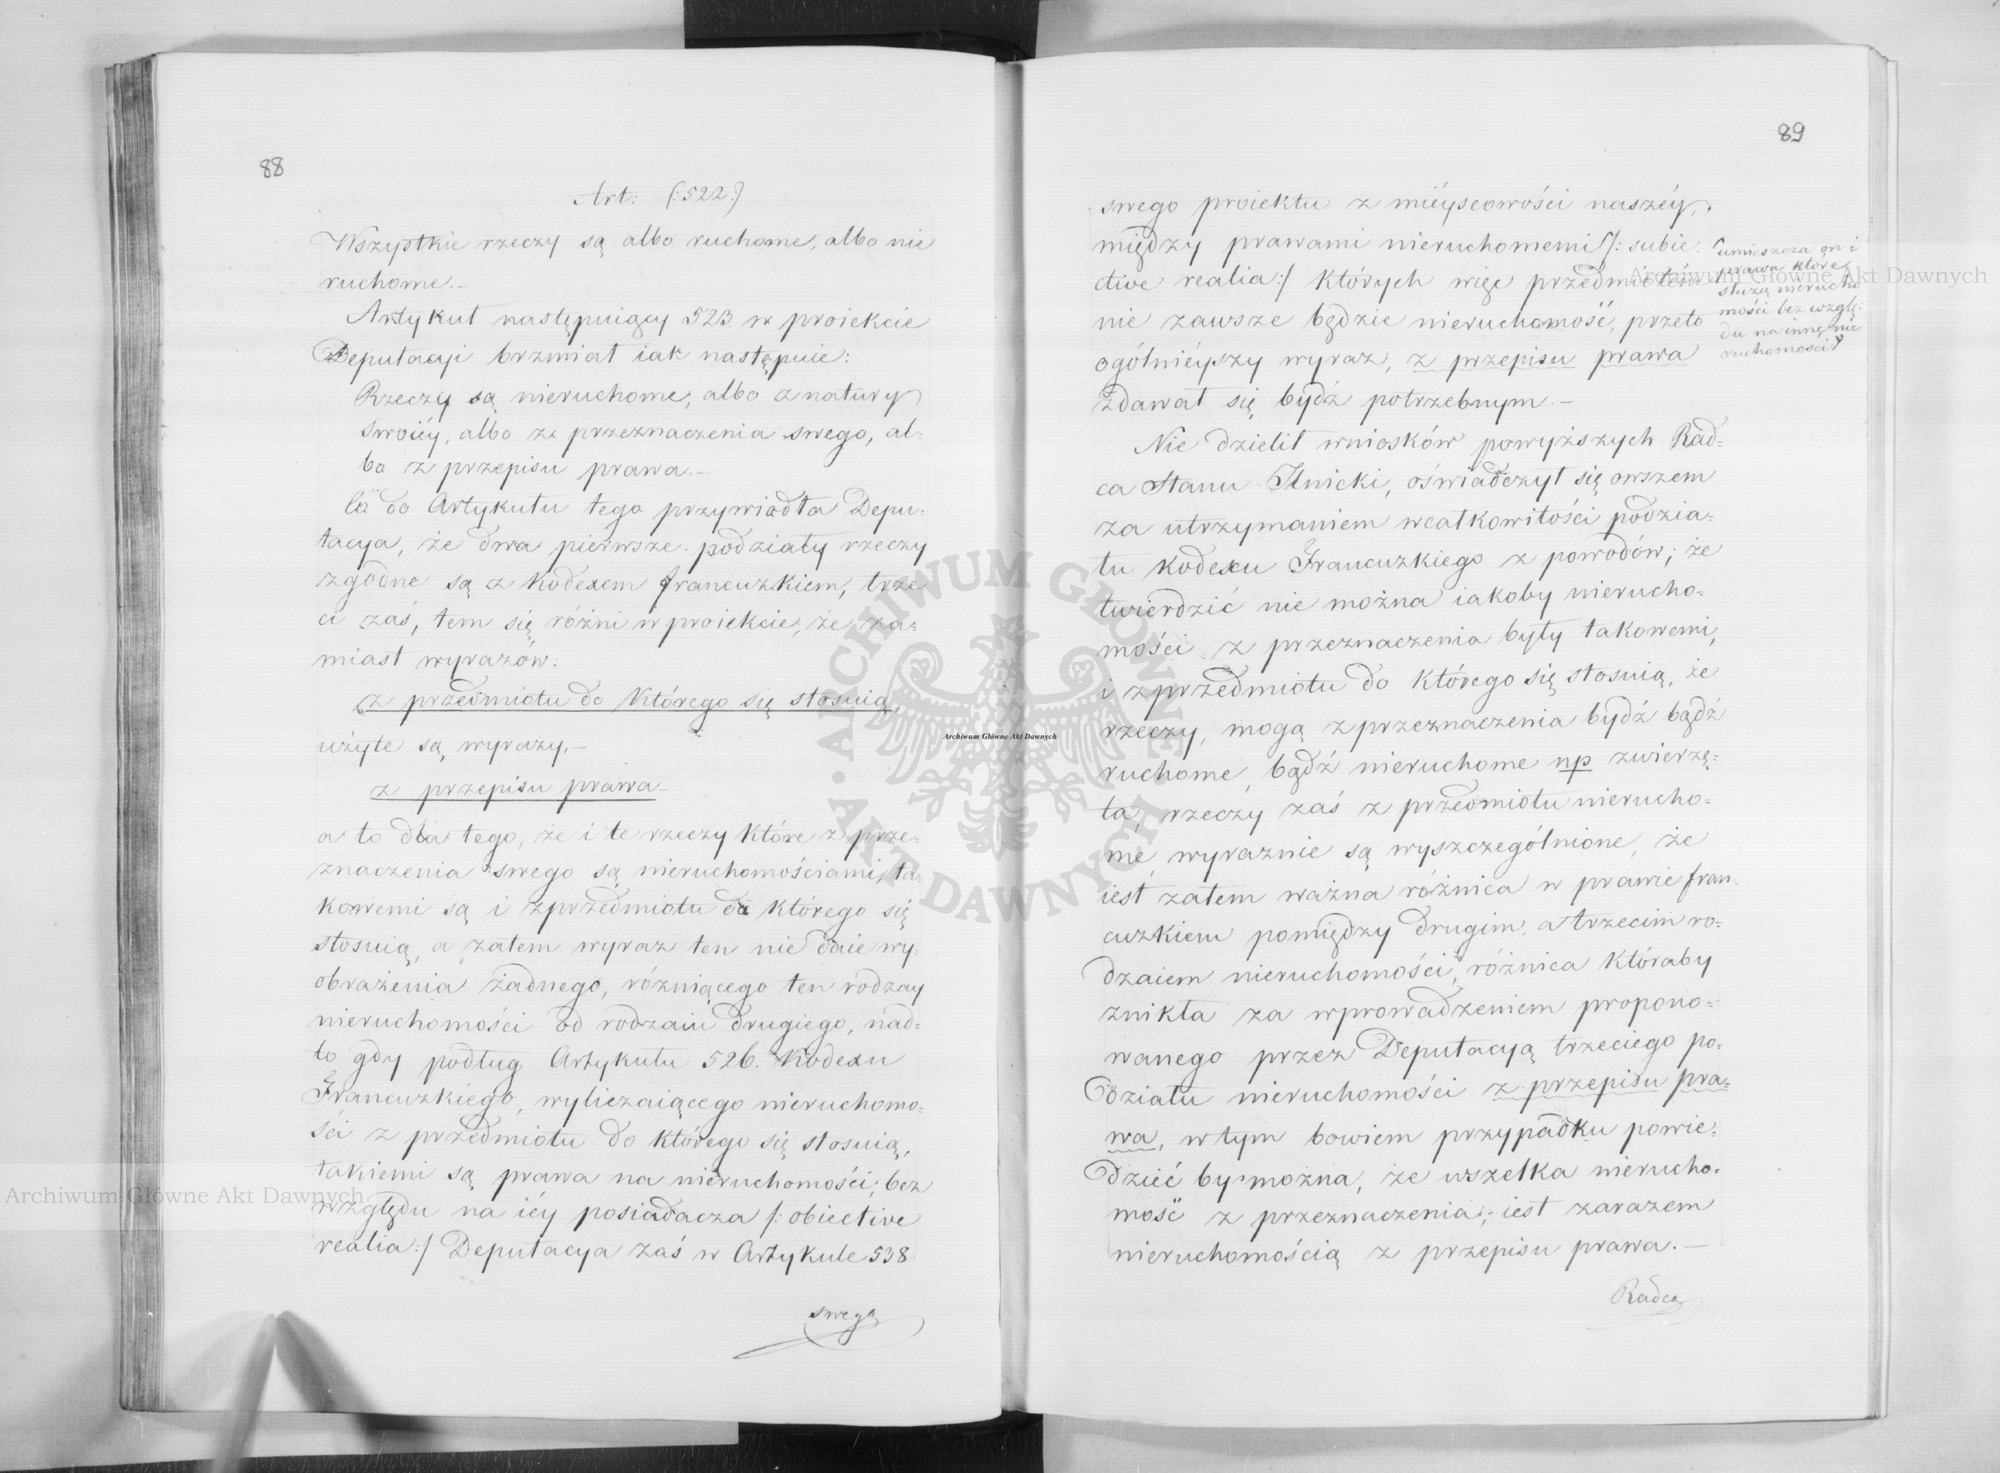 88
Art: (:522:)
Wszystkie rzeczy są albo ruchome, albo nie
ruchome.–
Artykuł następuiący 523. w proiekcie
Deputacyi brzmiał iak następuie:
Rzeczy są nieruchome, albo z natury
swoiéy, albo z przeznaczenia swego, al-
bo z przepisu prawa.–
Co do Artykułu tego przywiodła Depu-
tacya, że dwa pierwsze podziały rzeczy
zgodne są z Kodexem francuzkiem, trze-
ci zaś, tem się różni w proiekcie, że za-
miast wyrazów:
z przedmiotu do którego się stosuią,
użyte są wyrazy,–
z przepisu prawa–
a to dla tego, że i te rzeczy które z prze-
znaczenia swego są nieruchomościami, ta-
kowemi są i z przedmiotu do którego się
stosuią, a zatem wyraz ten nie daie wy-
obrażenia żadnego, różniącego ten rodzay
nieruchomości od rodzaiu drugiego, nad-
to gdy podług Artykułu 526. Kodexu
Francuzkiego, wyliczaiącego nieruchomo-
ści z przedmiotu do którego się stosuią,
takiemi są prawa na nieruchomości, bez
względu na iéy posiadacza /: obiective
realia:/ Deputacya zaś w Artykule 538
swego
89
swego proiektu z mieyscowości naszéy,
między prawami nieruchomemi /: subie-
ctive realia:/ których więc przedmiotem
nie zawsze będzie nieruchomość, przeto
ogólnieyszy wyraz, z przepisu prawa
zdawał się bydź potrzebnym.–
umieszcza on i
prawa które
służą nierucho
mości bez wzglę-
du na inną nie
ruchomość
Nie dzielił wniosków powyższych Rad-
ca Stanu Ilnicki, oświadczył się owszem
za utrzymaniem w całkowitości podzia-
łu kodexu Francuzkiego z powodów; że
twierdzić nie można iakoby nierucho-
mości z przeznaczenia były takowemi,
i z przedmiotu do którego się stosuią, że
rzeczy, mogą z przeznaczenia bydź bądź
ruchome, bądź nieruchome np zwierzę-
ta, rzeczy zaś z przedmiotu nierucho-
me, wyraznie są wyszczególnione, że
iest zatem ważna różnica w prawie fran-
cuzkiem pomiędzy drugim, a trzecim ro-
dzaiem nieruchomości, różnica któraby
znikła za wprowadzeniem propono-
wanego przez Deputacyą trzeciego po-
działu nieruchomości z przepisu pra-
wa, w tym bowiem przypadku powie-
dzieć by można, że wszelka nierucho-
mość z przeznaczenia, iest zarazem
nieruchomością z przepisu prawa.–
Radca
Archiwum Główne Akt Dawnych
Archiwum Główne Akt Dawnych
Archiwum Główne Akt Dawnych
ARCHIWUM GŁÓWNE AKT DAWNYCH